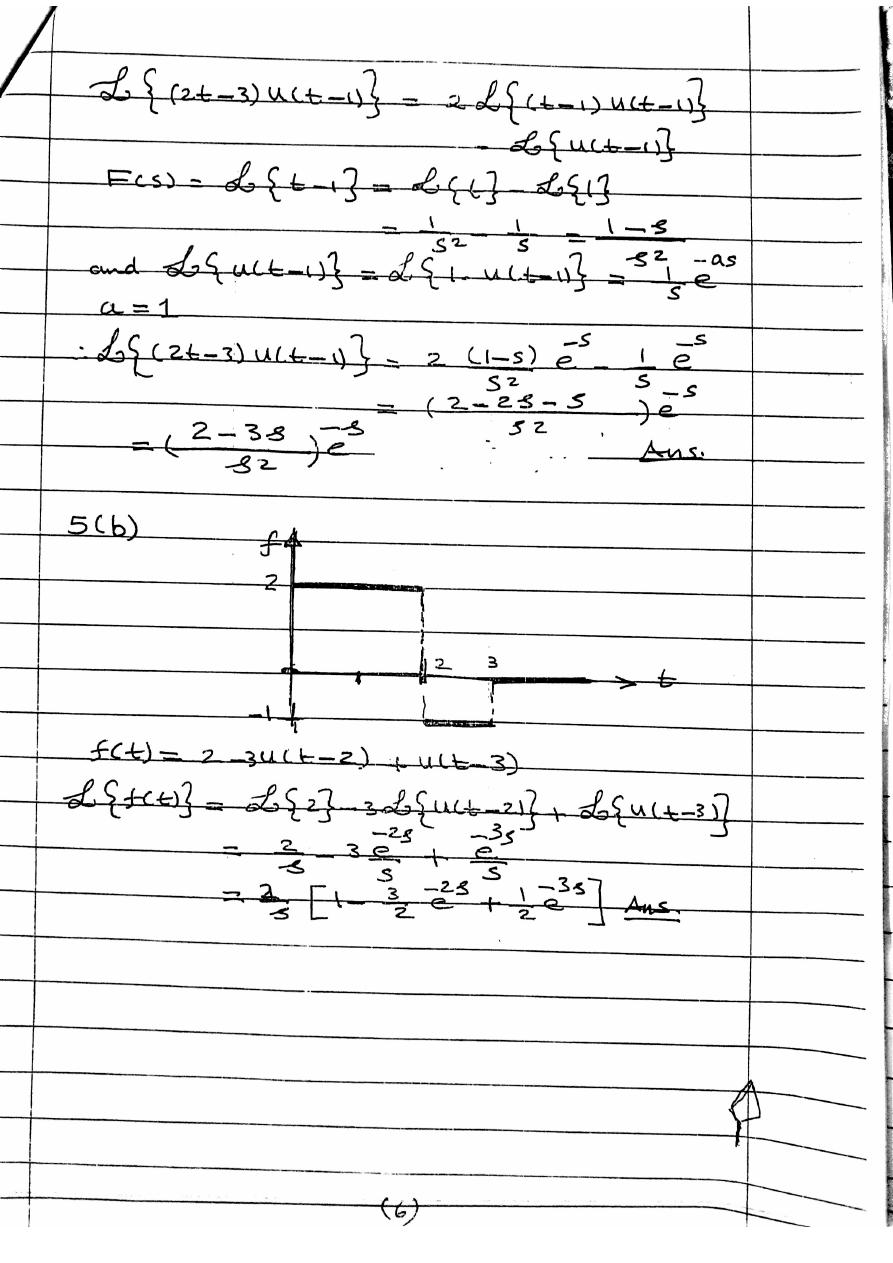 ℒ{(2t-3)u(t-1)} = 2ℒ{(t-1)u(t-1)}
- ℒ{u(t-1)}
F(s) = ℒ{t-1} = ℒ{t} - ℒ{1}
= 1/s² - 1/s = (1-s)/s²
and ℒ{u(t-1)} = ℒ{1. u(t-1)} = 1/s e^-as
a = 1
∴ ℒ{(2t-3)u(t-1)} = 2 (1-s)/s² e^-s - 1/s e^-s
= ((2-2s-s)/s²) e^-s
= ((2-3s)/s²) e^-s Ans.
5(b)
f
2
2 3
t
-1
f(t) = 2 - 3u(t-2) + u(t-3)
ℒ{f(t)} = ℒ{2} - 3ℒ{u(t-2)} + ℒ{u(t-3)}
= 2/s - 3 e^-2s/s + e^-3s/s
= 2/s [1 - 3/2 e^-2s + 1/2 e^-3s] Ans.
(6)